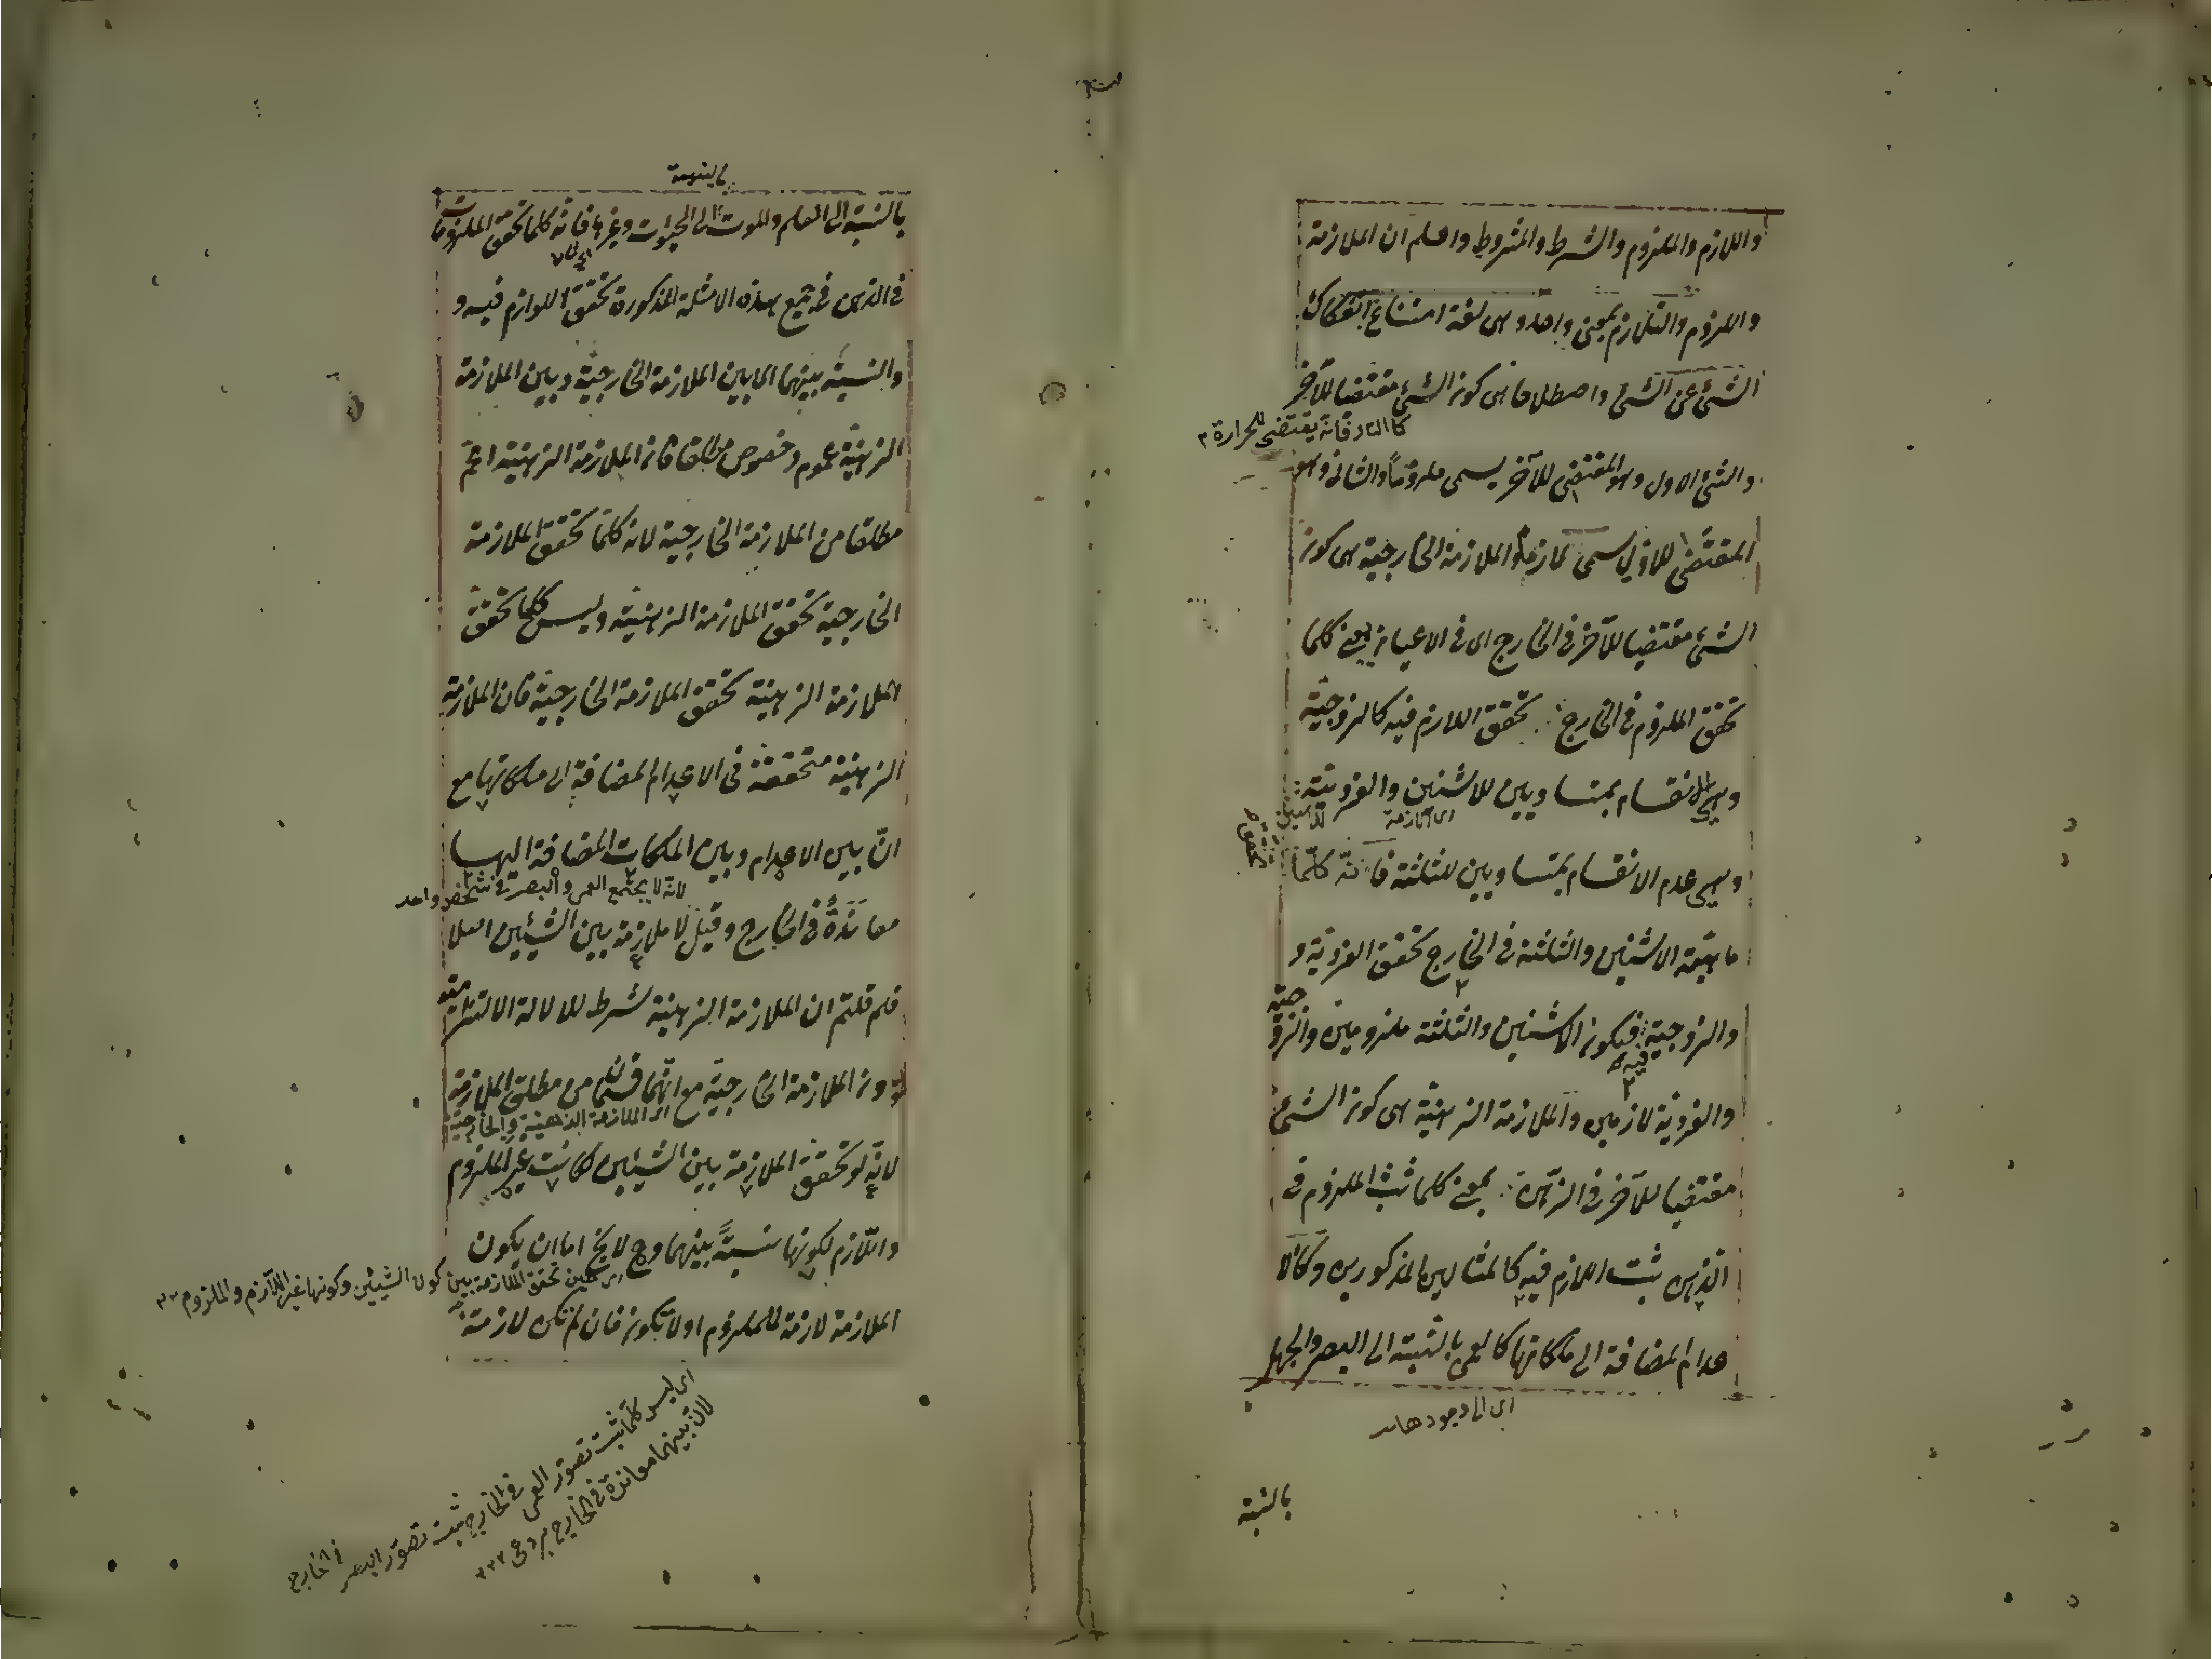 واللازم والملزوم والشرط والمشروط واعلم ان الملازمة
واللزوم والتلازم بمعنى واحد وهى لغة امتناع انفكاك
الشئ عن الشئ واصطلاحا هى كون الشئ مقتضيا للآخر
كالنار فانه يقتضى للحرارة
والشئ الاول وهو المقتضى للآخر يسمى ملزوماً والثانى وهو
المقتضى للاول يسمى لازما والملازمة الخارجية هى كون
الشئ مقتضيا للآخر فى الخارج اى فى الاعيان يعنى كلما
تحقق الملزوم فى الخارج تحقق اللازم فيه كالزوجية
وهى الانقسام بمتساويين للاثنين والفردية
اى اللازمة
وهى عدم الانقسام بمتساويين للثلثة فانه كلّما
تحقق
ماهية الاثنين والثلثة فى الخارج تحقق الفردية و
والزوجية فيه فيكون الاثنين والثلثة ملزومين والزوجية
والفردية لازمين والملازمة الذهنية هى كون الشئ
مقتضيا للآخر فى الذهن بمعنى كلما ثبت الملزوم فى
الذهن ثبت اللازم فيه كالمثالين المذكورين وكالا
عدام المضافة الى ملكاتها كالعمى بالنسبة الى البصر والجهل
اى الى وجودها
بالنسبة
بالنسبة الى العلم والموت الى الحيوة وغيرها فانه كلما تحقق الملزومات
فى الذهن فى جميع هذه الامثلة المذكورة تحقق اللوازم فيه و
والنسبة بينهما اى بين الملازمة الخارجية وبين الملازمة
الذهنية عموم وخصوص مطلقا فان الملازمة الذهنية اعمّ
مطلقا من الملازمة الخارجية لانه كلما تحقق الملازمة
الخارجية تحقق الملازمة الذهنية وليس كلما تحقق
الملازمة الذهنية تحقق الملازمة الخارجية فان الملازمة
الذهنية متحققة فى الاعدام المضافة الى ملكاتها مع
انّ بين الاعدام وبين الملكات المضافة اليها
لانه لا يجتمع العمى والبصر فى شخص واحد
معاندة فى الخارج وقيل لا ملازمة بين الشيئين اصلا
فلم قلتم ان الملازمة الذهنية شرط للدلالة الالتزامية
دون الملازمة الخارجية مع انهما قسمان من مطلق الملازمة
اى الملازمة الذهنية والخارجية
لانه لو تحقق الملازمة بين الشيئين لكانت غير الملزوم
واللازم لكونها نسبةً بينهما وح لا يخ اما ان يكون
اى حين تحقق الملازمة بين كون الشيئين وكونها غير اللازم والملزوم
الملازمة لازمة للملزوم او لا تكون فان لم تكن لازمة
اى ليس كلما ثبت تصور العمى فى الخارج ثبت تصور البصر فى الخارج
لان بينهما معاندة فى الخارج